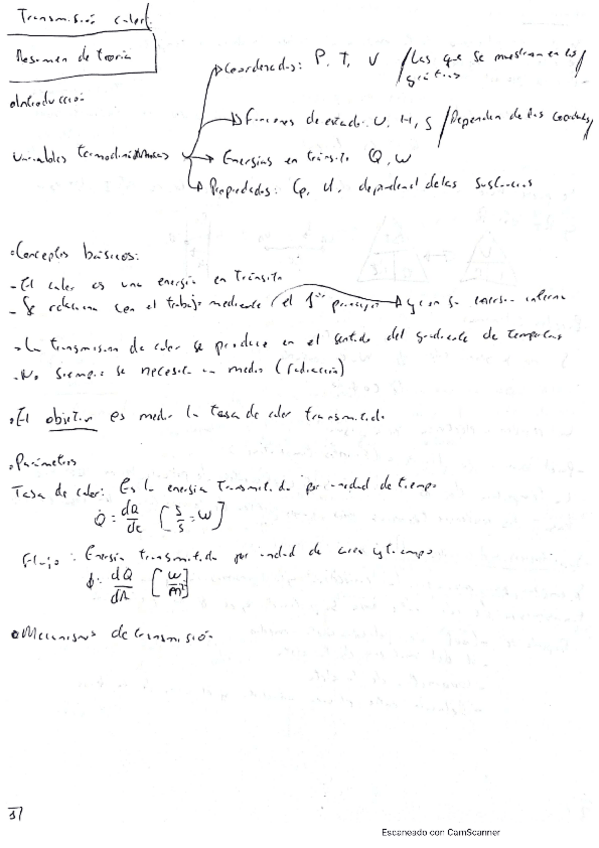 Transmisión calor
Resumen de teoría
Introducción
Variables termodinámicas
Coordenadas: P, T, V / Las que se muestran en los gráficos
Funciones de estado: U, H, S / Dependen de las coordenadas
Energías en tránsito Q, W
Propiedades: Cp, dependen de las sustancias
Conceptos básicos:
- El calor es una energía en tránsito
- Se relaciona con el trabajo mediante el 1er principio y con su energía interna
- La transmisión de calor se produce en el sentido del gradiente de temperaturas
- No siempre se necesita un medio (radiación)
El objetivo es medir la tasa de calor transmitido
Parámetros
Tasa de calor: Es la energía transmitida por unidad de tiempo
Q̇ = dQ/dt [J/s = W]
Flujo: Energía transmitida por unidad de área y tiempo
ϕ: dQ/dA [W/m²]
Mecanismos de transmisión
1/
Escaneado con CamScanner